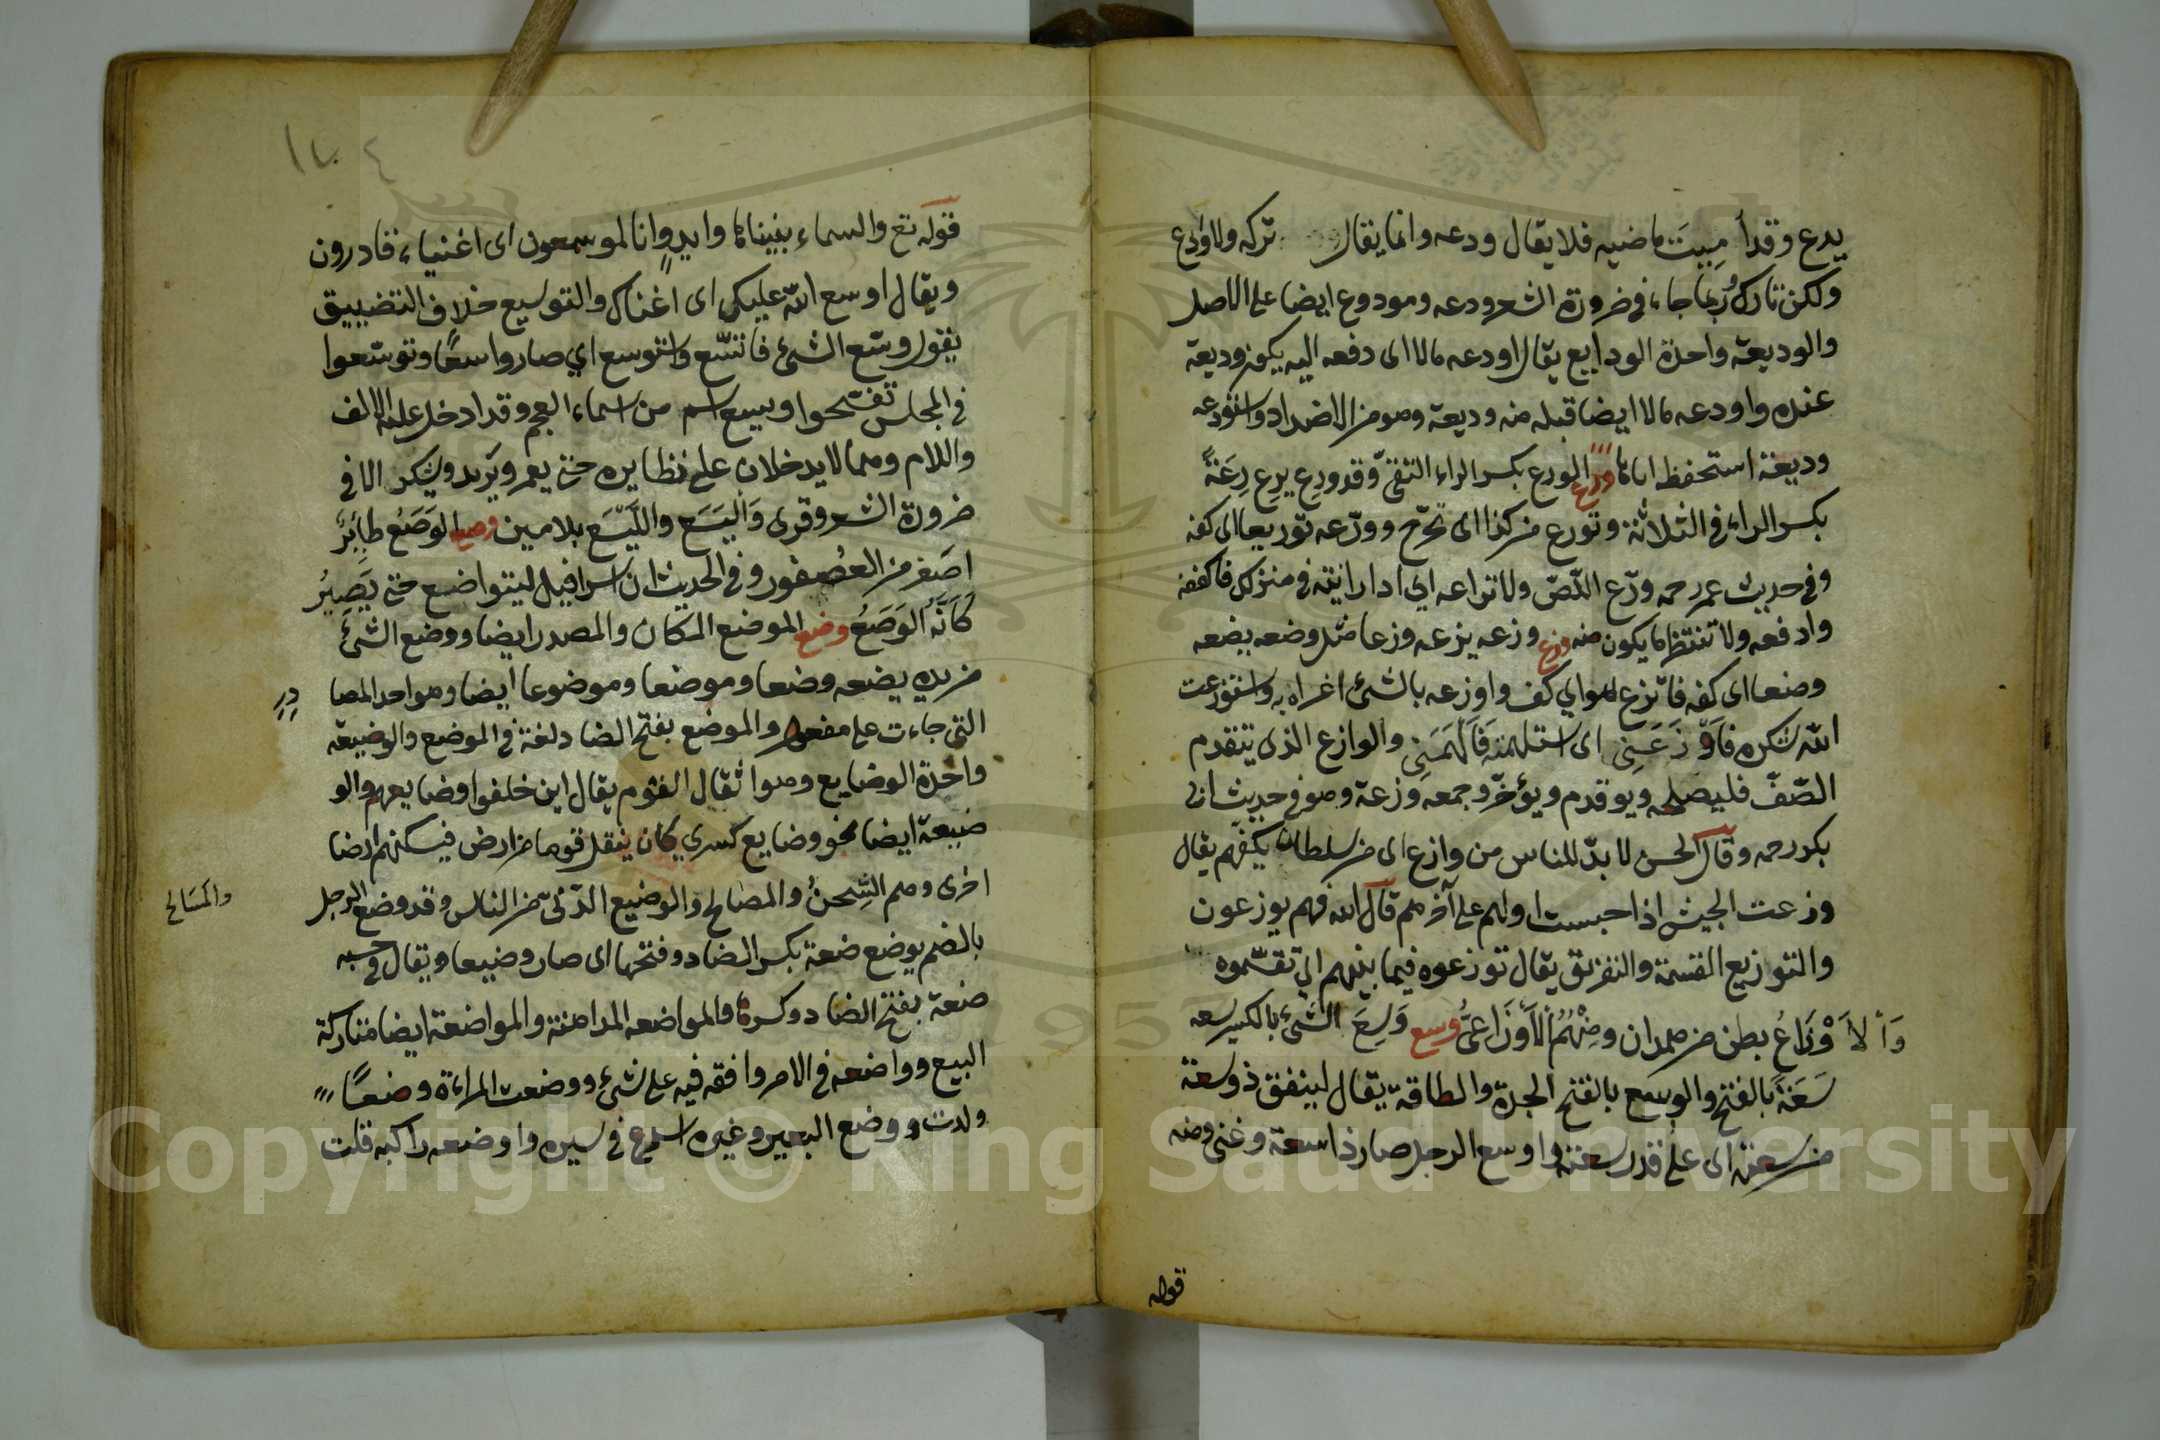 يدع وقد أميت ماضيه فلا يقال ودعه وانما يقال تركه ولا وادع
ولكن تارك ربما جاء في ضرورة الشعر ودعه ومودوع ايضا على الاصل
والوديعة واحدة الودايع يقال اودعه مالا اى دفعه اليه يكون وديعة
عنده واودعه مالا ايضا قبله منه وديعة وهو من الاضداد واستودعه
وديعة استحفظه اياها ورع الورع بكسر الراء التقيّ وقد ورع يرع رِعَةً
بكسر الراء في الثلاثة وتورع من كذا اى تحرّج وورّعه توريعا اى كفه
وفي حديث عمر رحمه ورّع اللّصّ ولا تراعه اي اذا رايته في منزلك فاكففه
وادفعه ولا تنتظر ما يكون منه وزع وزعه يزعه وزعا مثل وضعه يضعه
وضعا اى كفه فاتزع هو اي كف واوزعه بالشئ اغراه به واستوزعت
الله شكره فَأَوْزَعَنِى اى استلهمته فَأَلْهَمَنِى والوازع الذى يتقدم
الصّفّ فليصلحه ويقدم ويؤخّر وجمعه وزعة وهو في حديث ابى
بكر رحمه وقال الحسن لا بدّ للناس من وازع اى من سلطان يكفّهم يقال
وزعت الجيش اذا حبست اولهم على آخرهم قال الله فهم يوزعون
والتوازيع القسمة والتفريق يقال توزعوه فيما بينهم اي تقسّموه
وَالأَوْزَاعُ بطن من همدان ومِنْهُمُ الأَوْزَاعىُّ وسع وَسِعَ الشَّئُ بالكسر يسعه
سَعَةً بالفتح والوسع بالفتح الجدة والطاقة يقال لينفق ذو سعة
من سعته اى على قدر سعته واوسع الرجل صار ذا سعة وغنى ومنه
قوله
قوله تع والسماء بنيناها وايدٍ وانا لموسعون اى اغنياء قادرون
ويقال اوسع الله عليك اى اغناك والتوسيع خلاف التضييق
يقول وسّع الشئ فاتسّع واستوسع اي صار واسعًا وتوسّعوا
في المجلس تفسّحوا ويسع اسم من اسماء العجم وقد ادخل عليه الالف
واللام وهما لا يدخلان على نظايره نحو يعمر ويَزيد ويشكر الا في
ضرورة الشعر وقرى وَالْيَسَع واللَّيْسَع بلامين وصع الوَصَعُ طائِرٌ
اصغر من العُصفور وفي الحديث ان اسرافيل ليتواضع حتى يَصِيرُ
كَأَنَّهُ الوَصَعُ وضع الموضع المكان والمصدر ايضا ووضع الشئَ
من يده يضعه وضعا وموضعا وموضوعا ايضا وهو احد المصا
دِرِ
التى جاءت على مفعول والموضع بفتح الضاد لغة في الموضع والوضيعة
واحدة الوضايع وهو اثقال القوم يقال اين خلفوا وضايعهم والو
ضيعة ايضا نحو وضايع كسري كان ينقل قوما من ارض فيسكنهم ارضا
اخرى وهم الشِحنُ والمصالح والوضيع الدّنى من الناس وقد وضع الرجل
والمَسَالح
بالضم يوضع ضعة بكسر الضاد وفتحها اى صار وضيعا ويقال في حسبه
ضعة بفتح الضاد وكسرها والمواضعه المراهنة والمواضعة ايضا متاركة
البيع وواضعه في الامر وافقه فيه على شئ ووضعت المراءة وضعًا
ولدت ووضع البعير وغيره اسرع في سيره واوضعه راكبه قلت
Copyright © King Saud University
1957